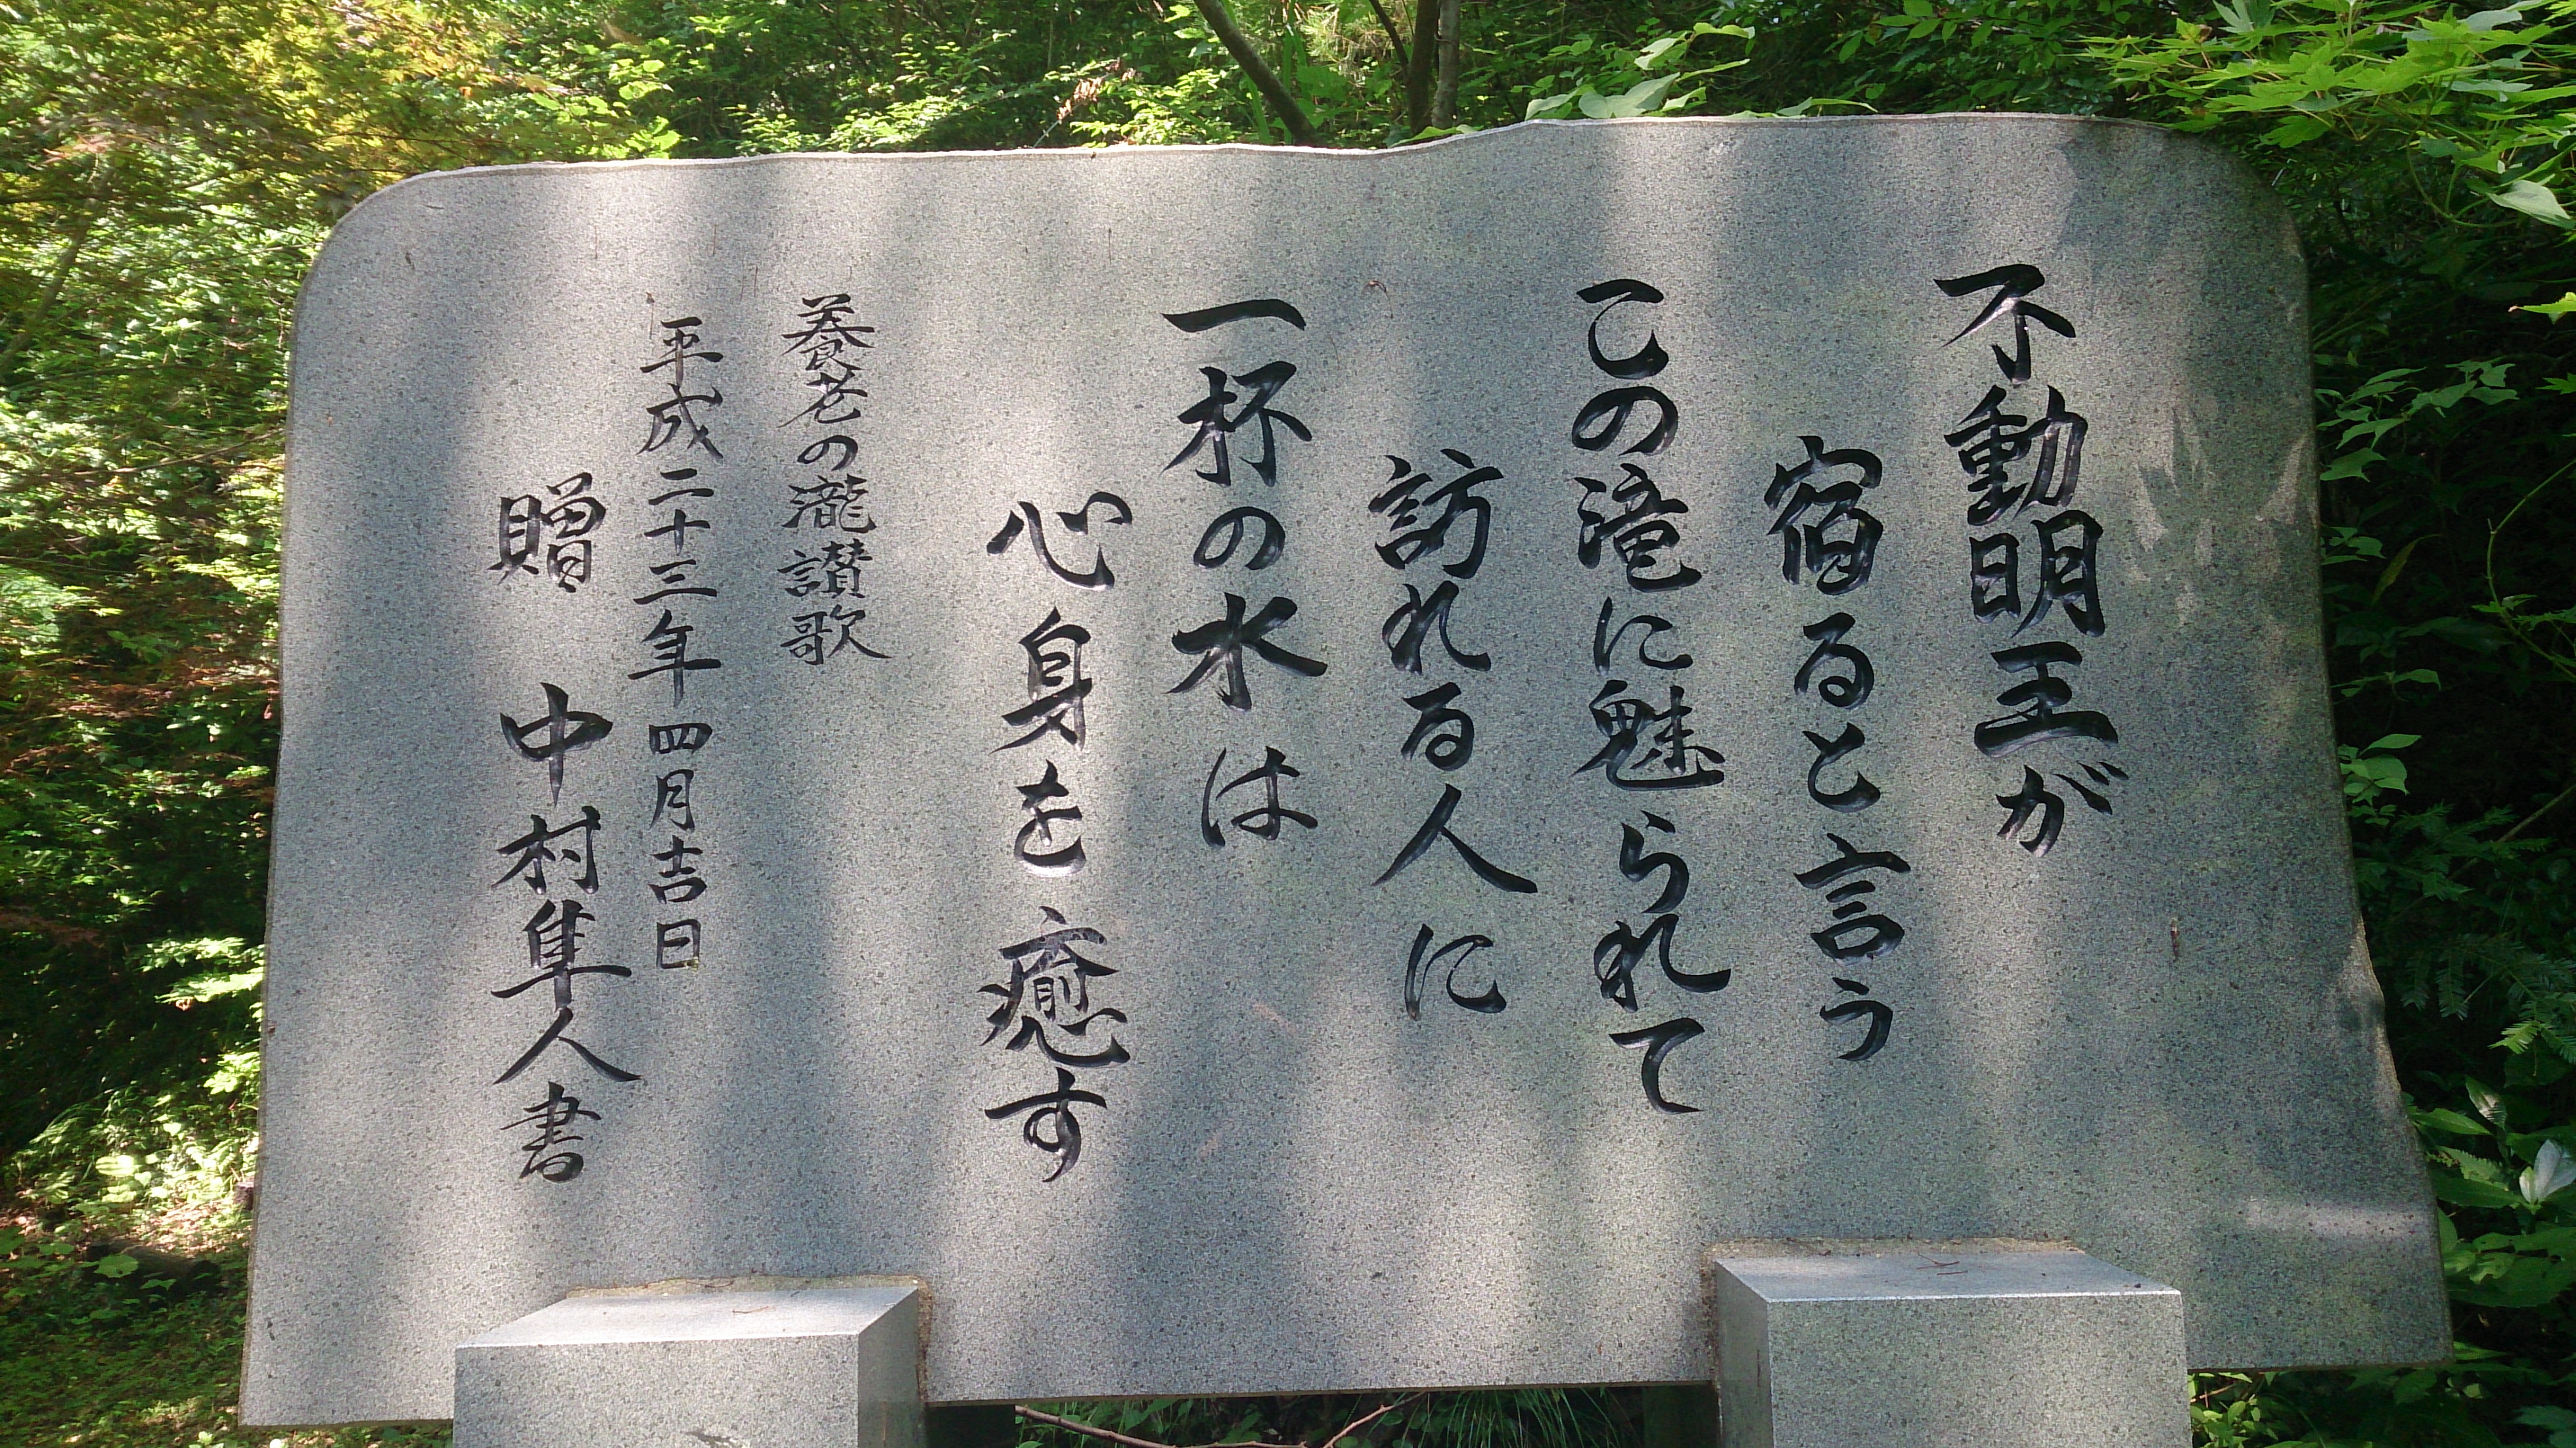 不動明王が
宿ると言う
この滝に魅られて
訪れる人に
一杯の水は
心身を癒す
養老の瀧讃歌
平成二十三年四月吉日
贈 中村隼人書